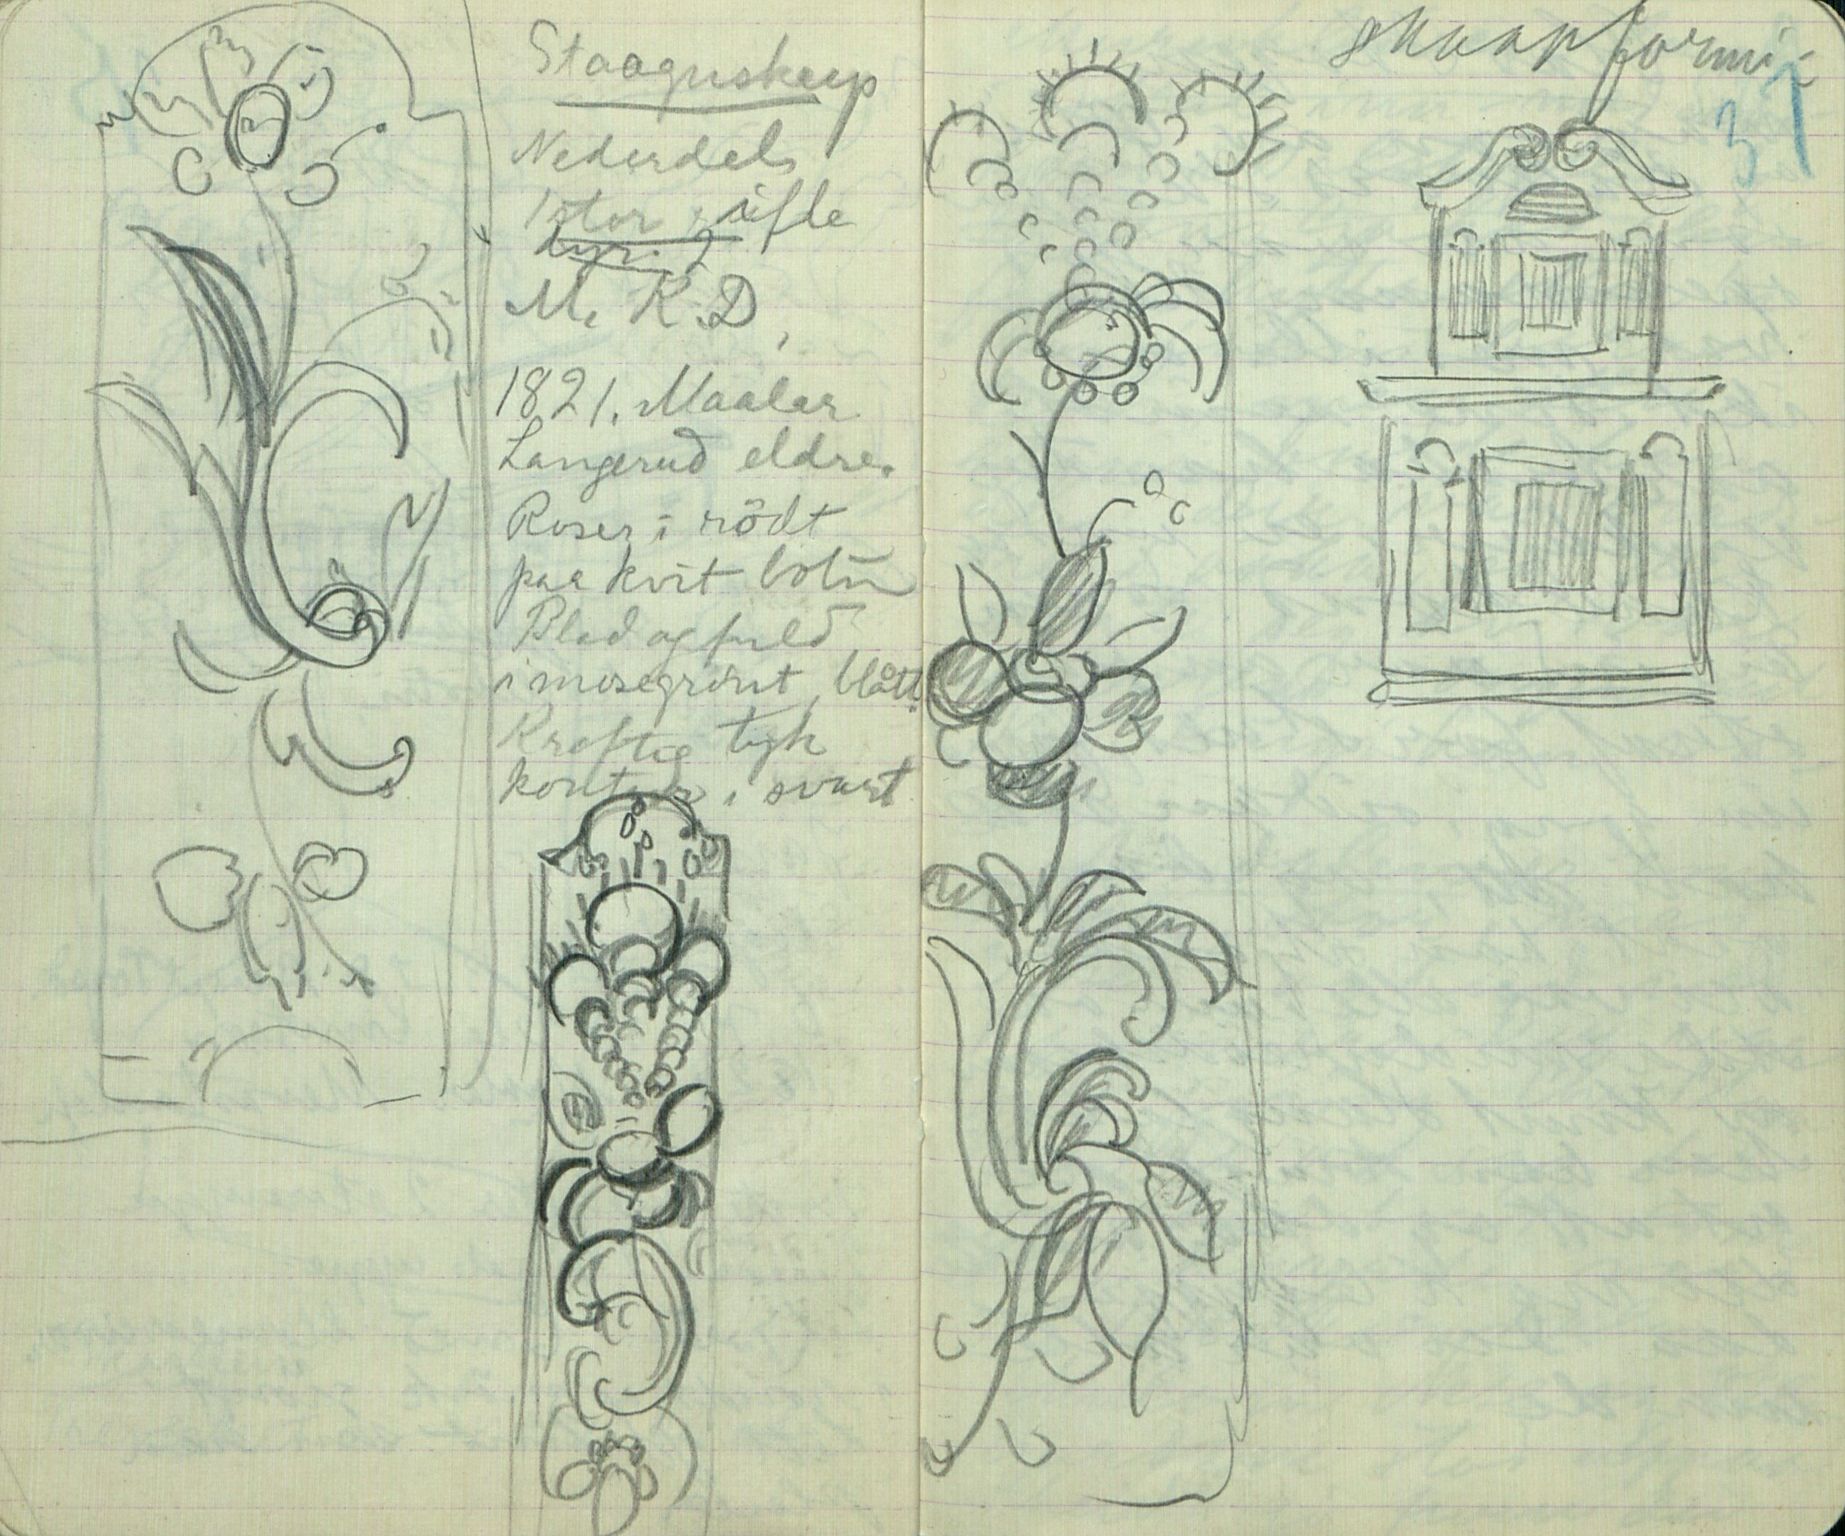 Staaguskap
Nederdels
1 stor
M. K. D.
1821. Maalar
Langerud eldre.
Roser i rödt
paa kvit botn
Blad og
i mosegrönt, blått
Kraftig tyk
kontur i svart
skaapform
37